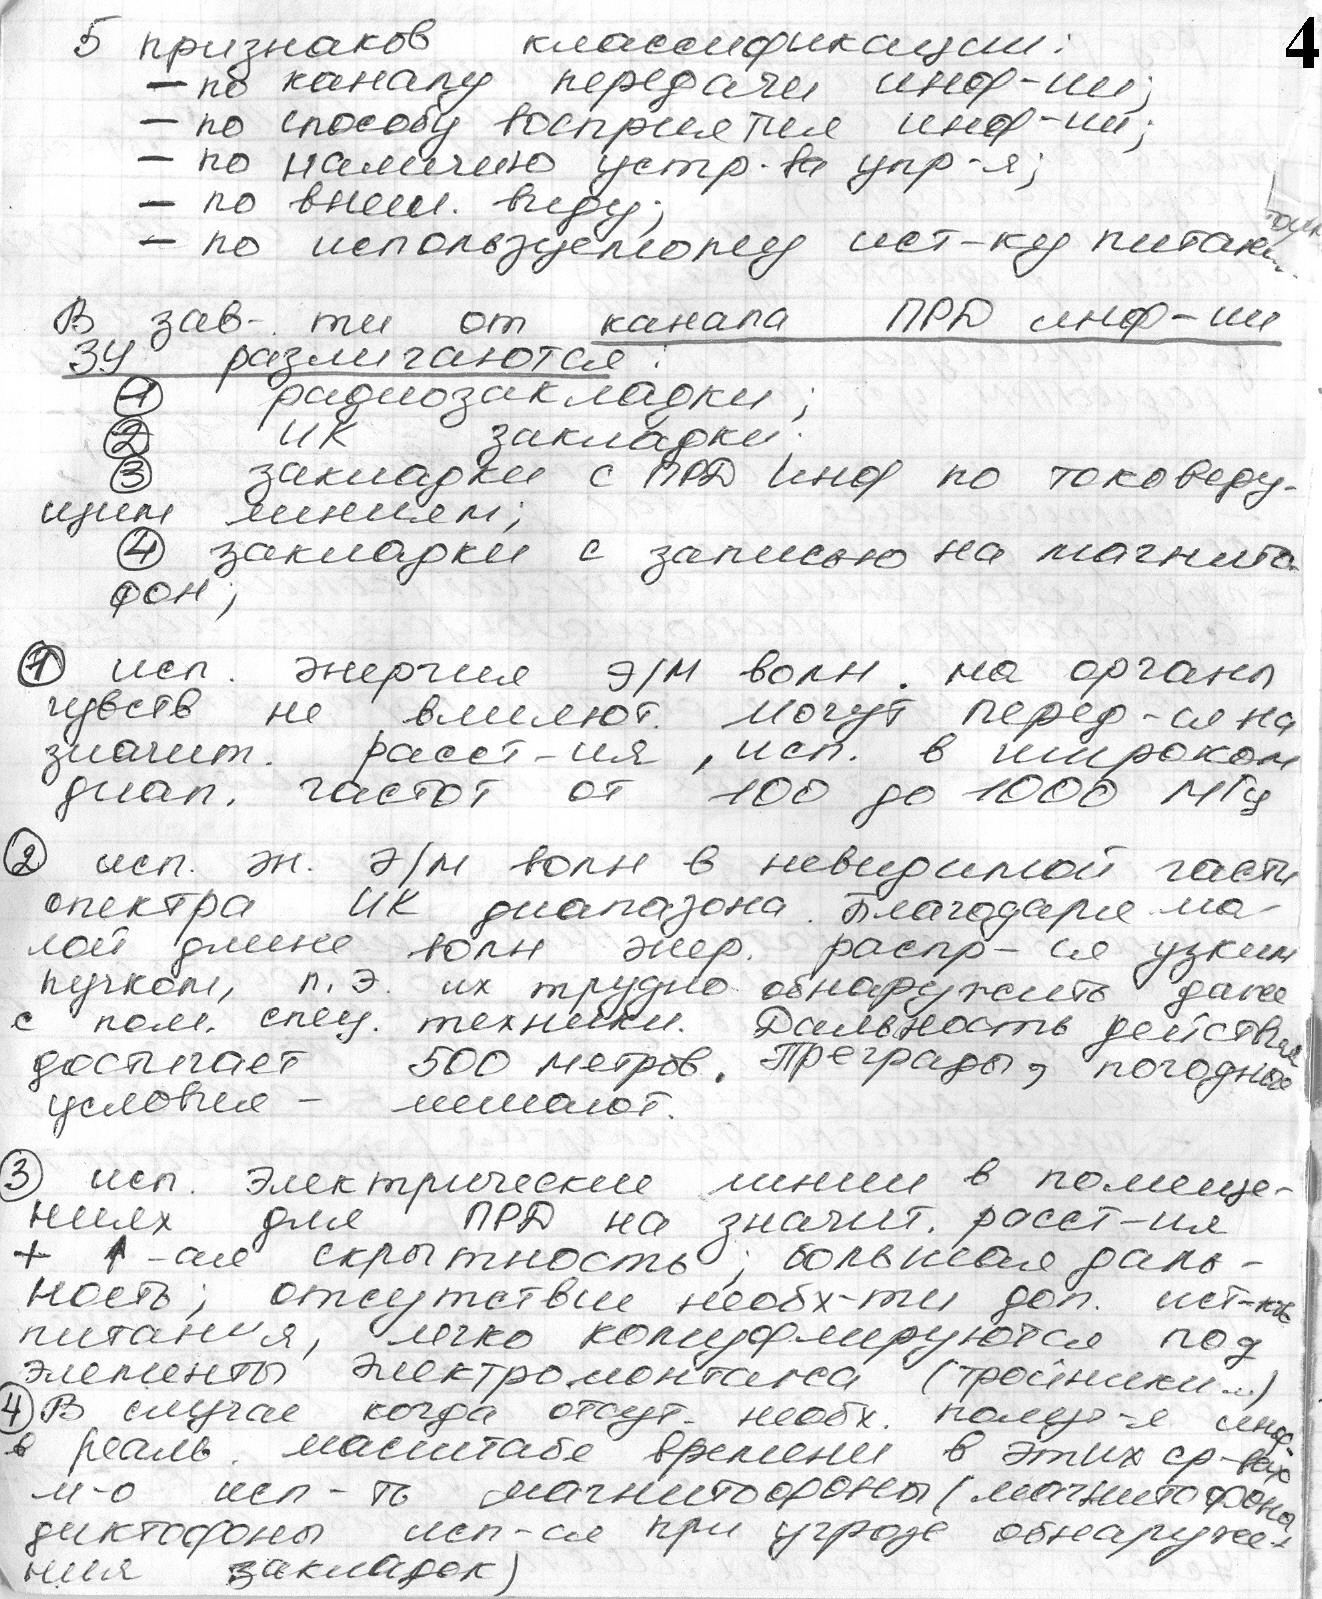 4
5 признаков классификации:
– по каналу передачи инф-ии;
– по способу восприятия инф-ии;
– по наличию устр-ва упр-я;
– по внеш. виду;
– по используемому ист-ку питан
В зав-ти от канала ПРД инф-ии
ЗУ различаются:
1 радиозакладки;
2 ИК закладки.
3 закладки с ПРД инф по токоведу-
щим линиям;
4 закладки с записью на магнито-
фон;
1 исп. энергия э/м волн. на органы
чувств не влияют. могут перед-ся на
значит. расст-ия, исп. в широком
диап. частот от 100 до 1000 МГц
2 исп. эн. э/м волн в невидимой части
спектра ИК диапазона. Благодаря ма-
лой длине волн энер. распр-ся узким
пучком, п.э. их трудно обнаружить даже
с пом. спец. техники. Дальность действия
достигает 500 метров. Преграды, погодные
условия – мешают.
3 исп. электрические линии в помеще-
ниях для ПРД на значит. расст-ия
+ ↑-ая скрытность; большая даль-
ность; отсутствие необх-ти доп. ист-ка
питания, легко камуфлируются под
элементы электромонтажа (тройники...)
4 В случае когда отсут. необх. получ-я инф-
в реаль. масштабе времени в этих ср-вах
м-о исп-ть магнитофоны (магнитофоны,
диктофоны исп-ся при угрозе обнаруже-
ния закладок)